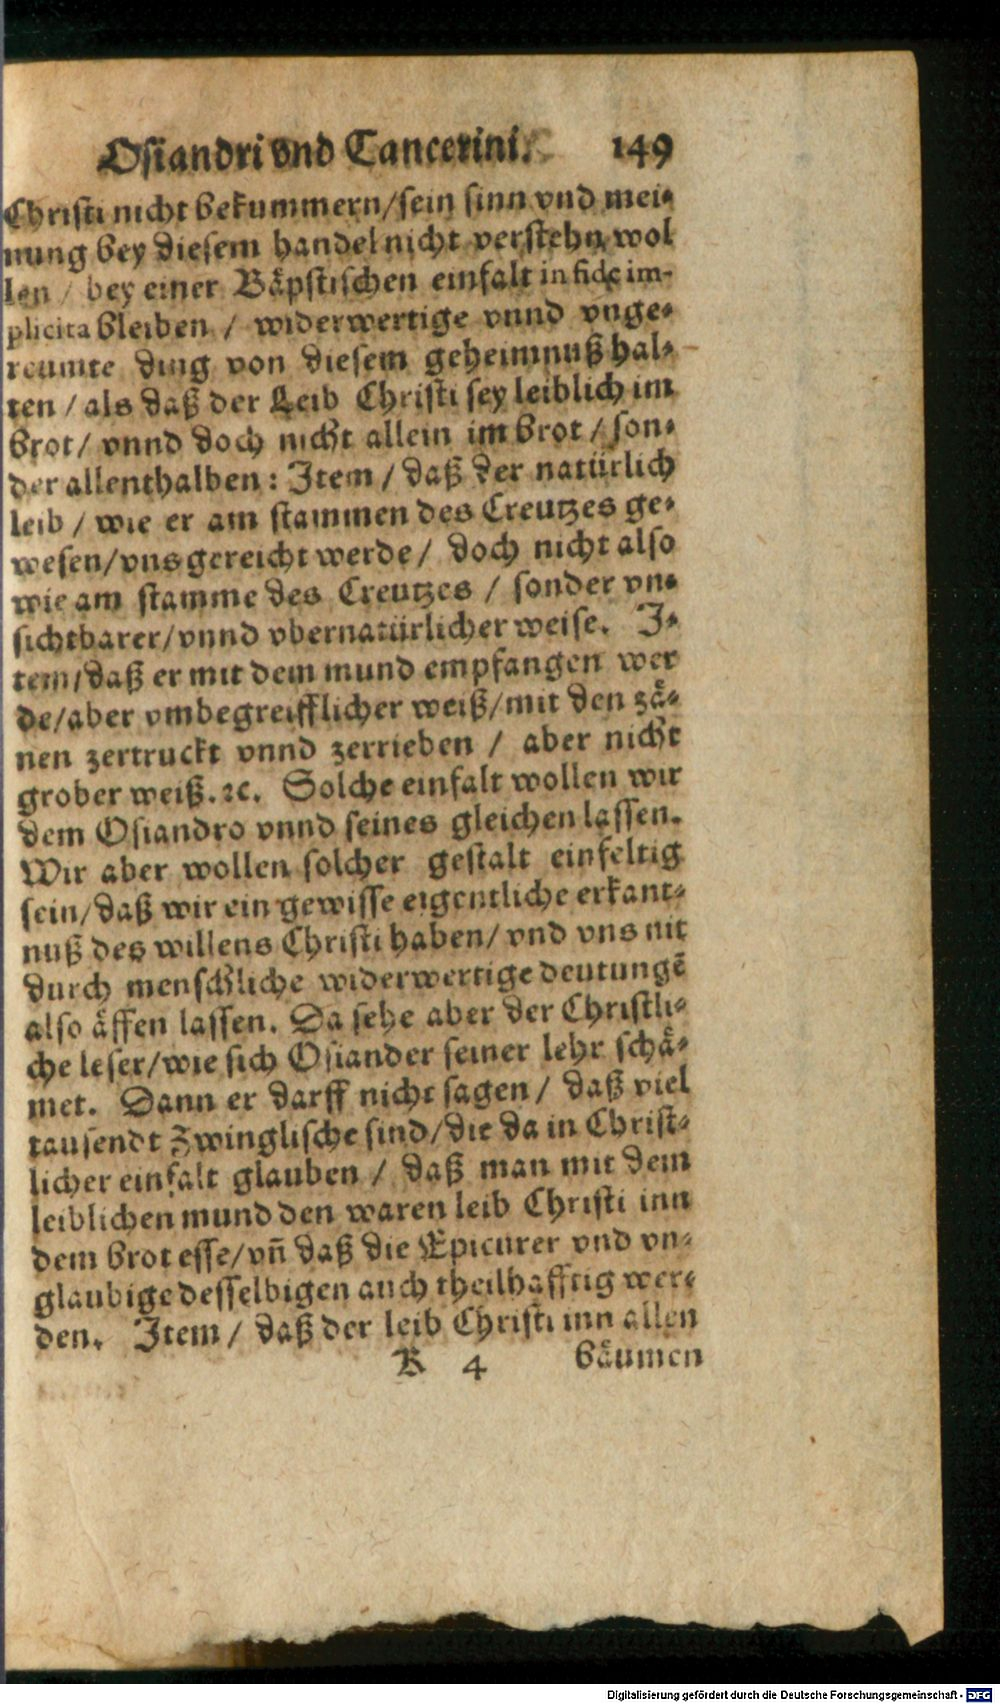 Osiandri vnd Cancerini. 149
Christi nicht bekummern/sein sinn vnd mei-
nung bey diesem handel nicht verstehn wol
len / bey einer Bäpstischen einfalt in fide im-
plicita bleiben / widerwertige vnnd vnge-
reumte ding von diesem geheimnuß hal-
ten / als daß der Leib Christi sey leiblich im
brot/ vnnd doch nicht allein im brot / son-
der allenthalben: Item / daß der natürlich
leib / wie er am stammen des Creutzes ge-
wesen/vns gereicht werde/ doch nicht also
wie am stamme des Creutzes / sonder vn-
sichtbarer/vnnd vbernatürlicher weise. I-
tem/daß er mit dem mund empfangen wer
de/aber vmbegreifflicher weiß/mit den zä-
nen zertruckt vnnd zerrieben / aber nicht
grober weiß.ꝛc. Solche einfalt wollen wir
dem Osiandro vnnd seines gleichen lassen.
Wir aber wollen solcher gestalt einfeltig
sein/daß wir ein gewisse eigentliche erkant-
nuß des willens Christi haben/ vnd vns nit
durch menschliche widerwertige deutungẽ
also äffen lassen. Da sehe aber der Christli-
che leser/wie sich Osiander seiner lehr schä-
met. Dann er darff nicht sagen / daß viel
tausendt Zwinglische sind/die da in Christ-
licher einfalt glauben / daß man mit dem
leiblichen mund den waren leib Christi inn
dem brot esse/vñ daß die Epicurer vnd vn-
glaubige desselbigen auch theilhafftig wer-
den. Item / daß der leib Christi inn allen
K 4 bäumen
Digitalisierung gefördert durch die Deutsche Forschungsgemeinschaft - DFG